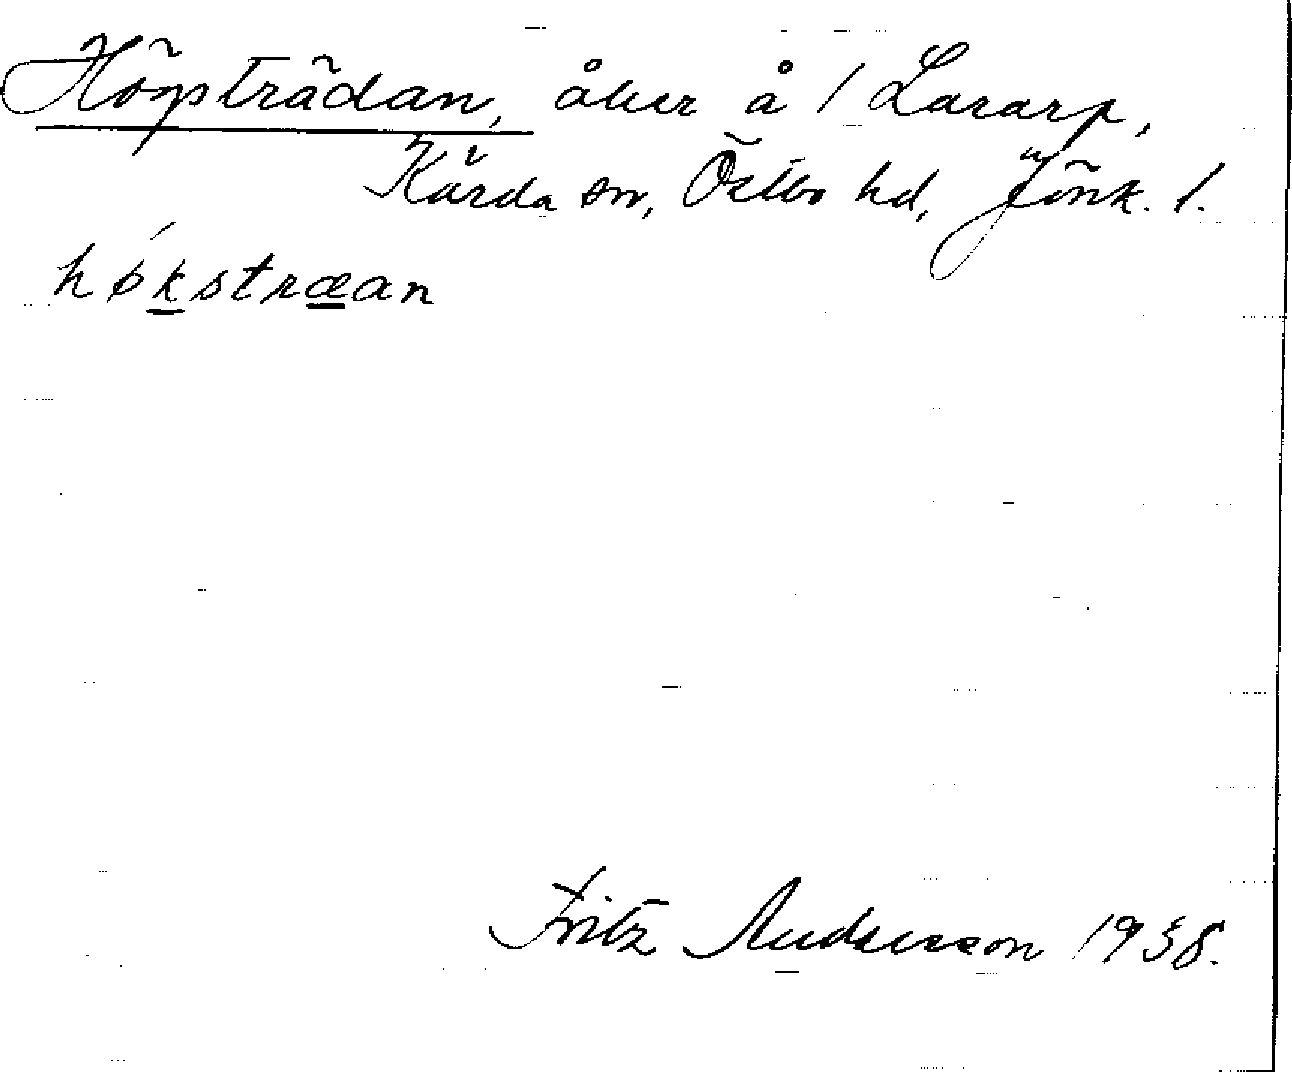 Högsträdan, åker å 1 Lararp,
Kärda sn, Östbo hd, Jönk. l.
høkstræan
Fritz Andersson 1938.